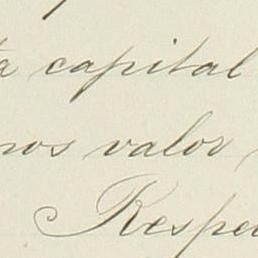 a capital
nos valor
Respe